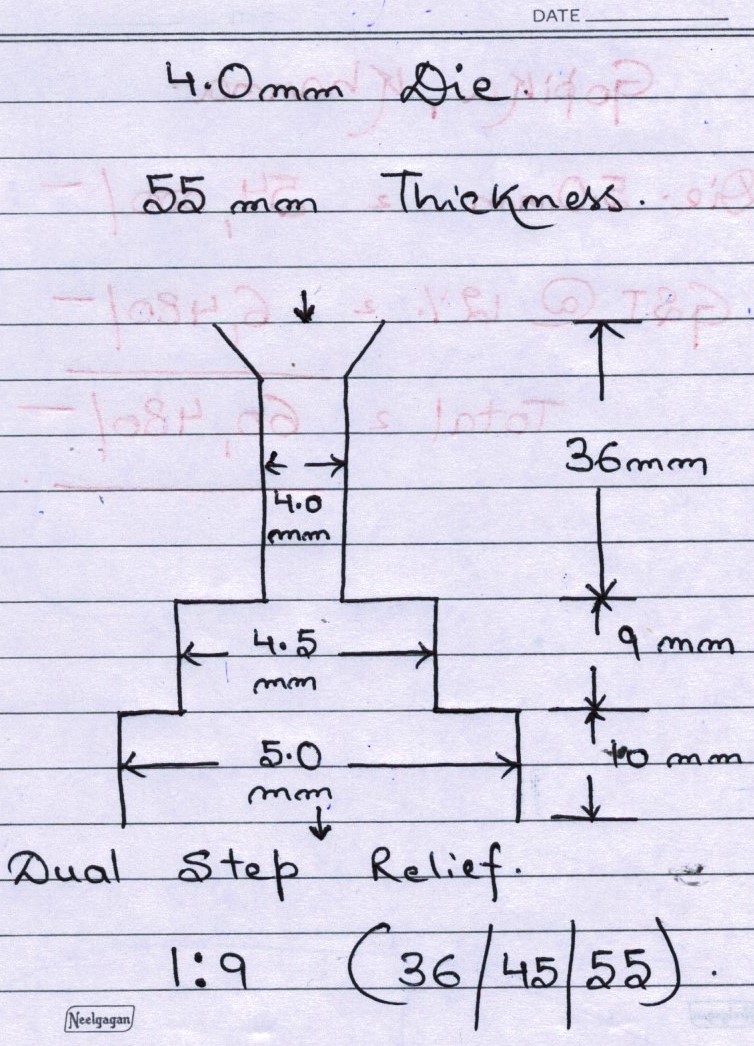 DATE
4.0mm Die.
55 mm Thickness.
36mm
4.0
mm
9 mm
4.5
mm
10 mm
5.0
mm
Dual Step Relief.
1:9 (36/45/55).
Neelgagan